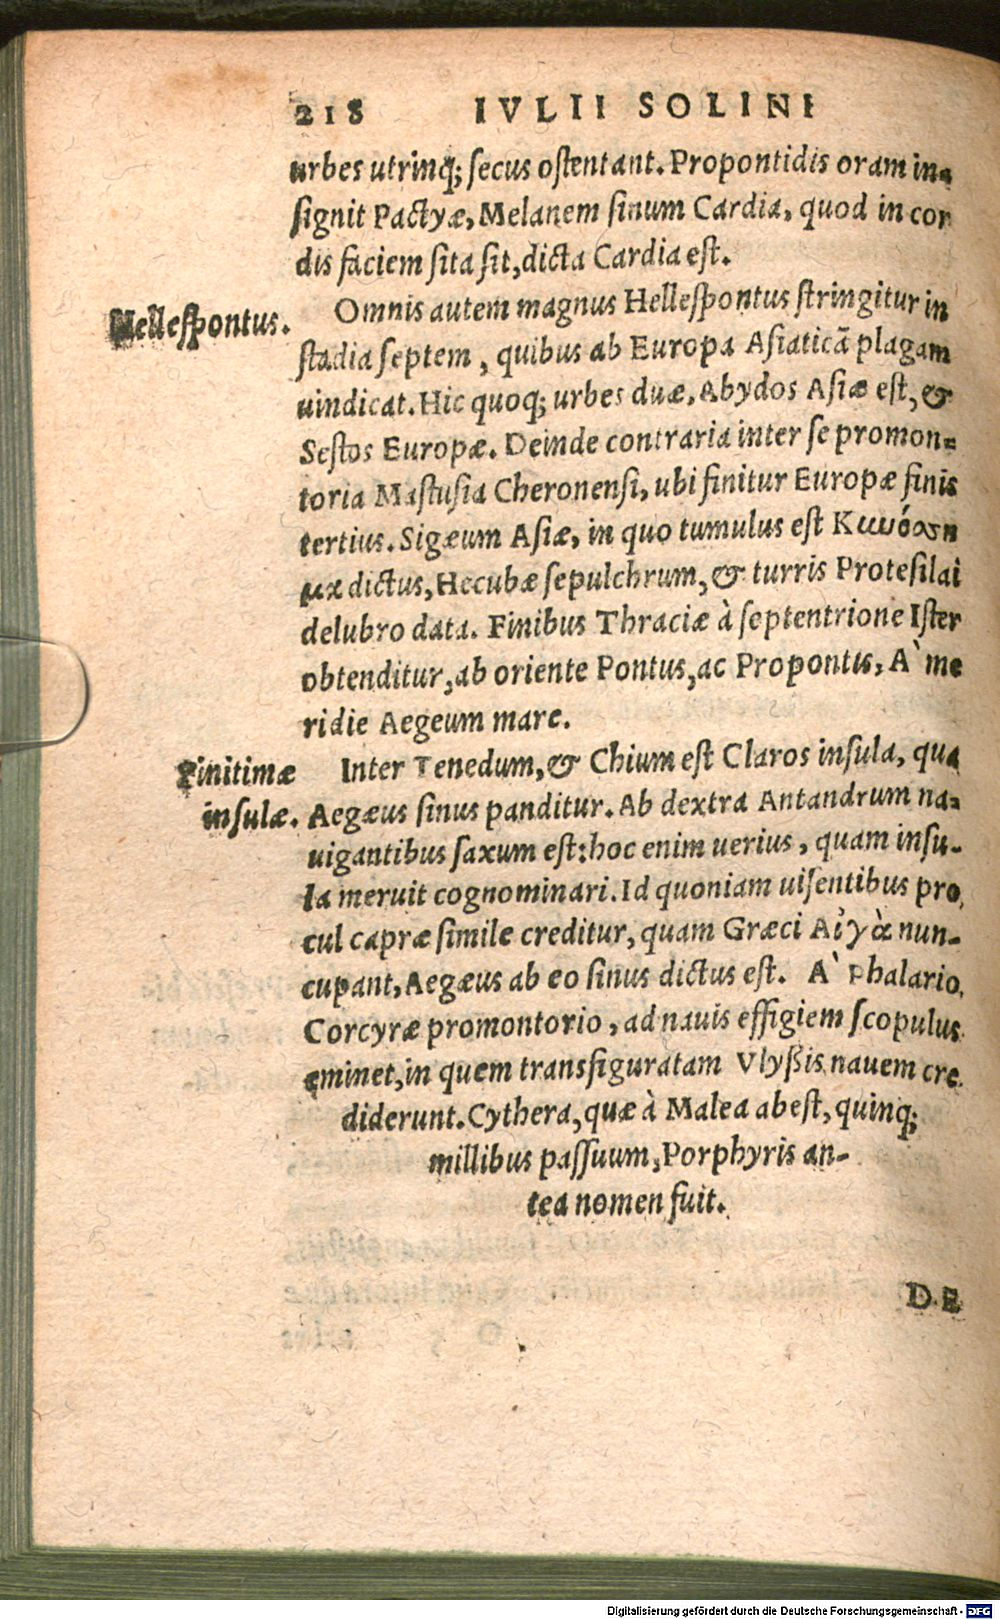 218 IVLII SOLINI
urbes utrinq; secus ostentant. Propontidis oram in-
signit Pactyæ, Melanem sinum Cardia, quod in cor
dis faciem sita sit, dicta Cardia est.
Hellespontus.
Omnis autem magnus Hellespontus stringitur in
stadia septem, quibus ab Europa Asiaticā plagam
uindicat. Hic quoq; urbes duæ, Abydos Asiæ est, &
Sestos Europæ. Deinde contraria inter se promon-
toria Mastusia Cheronensi, ubi finitur Europæ finis
tertius. Sigæum Asiæ, in quo tumulus est
dictus, Hecubæ sepulchrum, & turris Protesilai
delubro data. Finibus Thraciæ à septentrione Ister
obtenditur, ab oriente Pontus, ac Propontis, A` me
ridie Aegeum mare.
Finitimæ
insulæ.
Inter Tenedum, & Chium est Claros insula, qua
Aegæus sinus panditur. Ab dextra Antandrum na-
uigantibus saxum est: hoc enim uerius, quam insu-
la meruit cognominari. Id quoniam uisentibus pro
cul capræ simile creditur, quam Græci Αἰγὰ nun-
cupant, Aegæus ab eo sinus dictus est. A` Phalario
Corcyræ promontorio, ad nauis effigiem scopulus
eminet, in quem transfiguratam Vlyßis nauem cre
diderunt. Cythera, quæ à Malea abest, quinq;
millibus passuum, Porphyris an-
tea nomen fuit.
DE
Digitalisierung gefördert durch die Deutsche Forschungsgemeinschaft - DFG